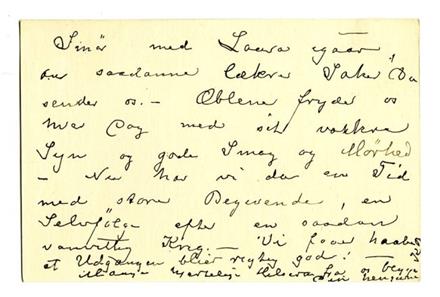 med Laura igaar
om saadanne lækre Saker Du
sender os. – Æblene fryder os
hver Dag med sit vakkre
Syn og gode Smag og Mørhed
– Nu har vi da en Tid
med store Begivende, en
Selvfølge efter en saadan
vanvittig Krig. – Vi faar haabe
at Udgangen blir rigtig god! –
Mange hjertelige Hilsener fra os begge